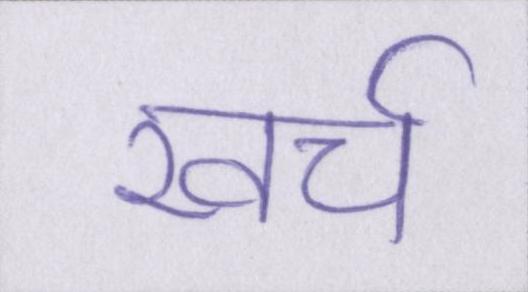 खर्च